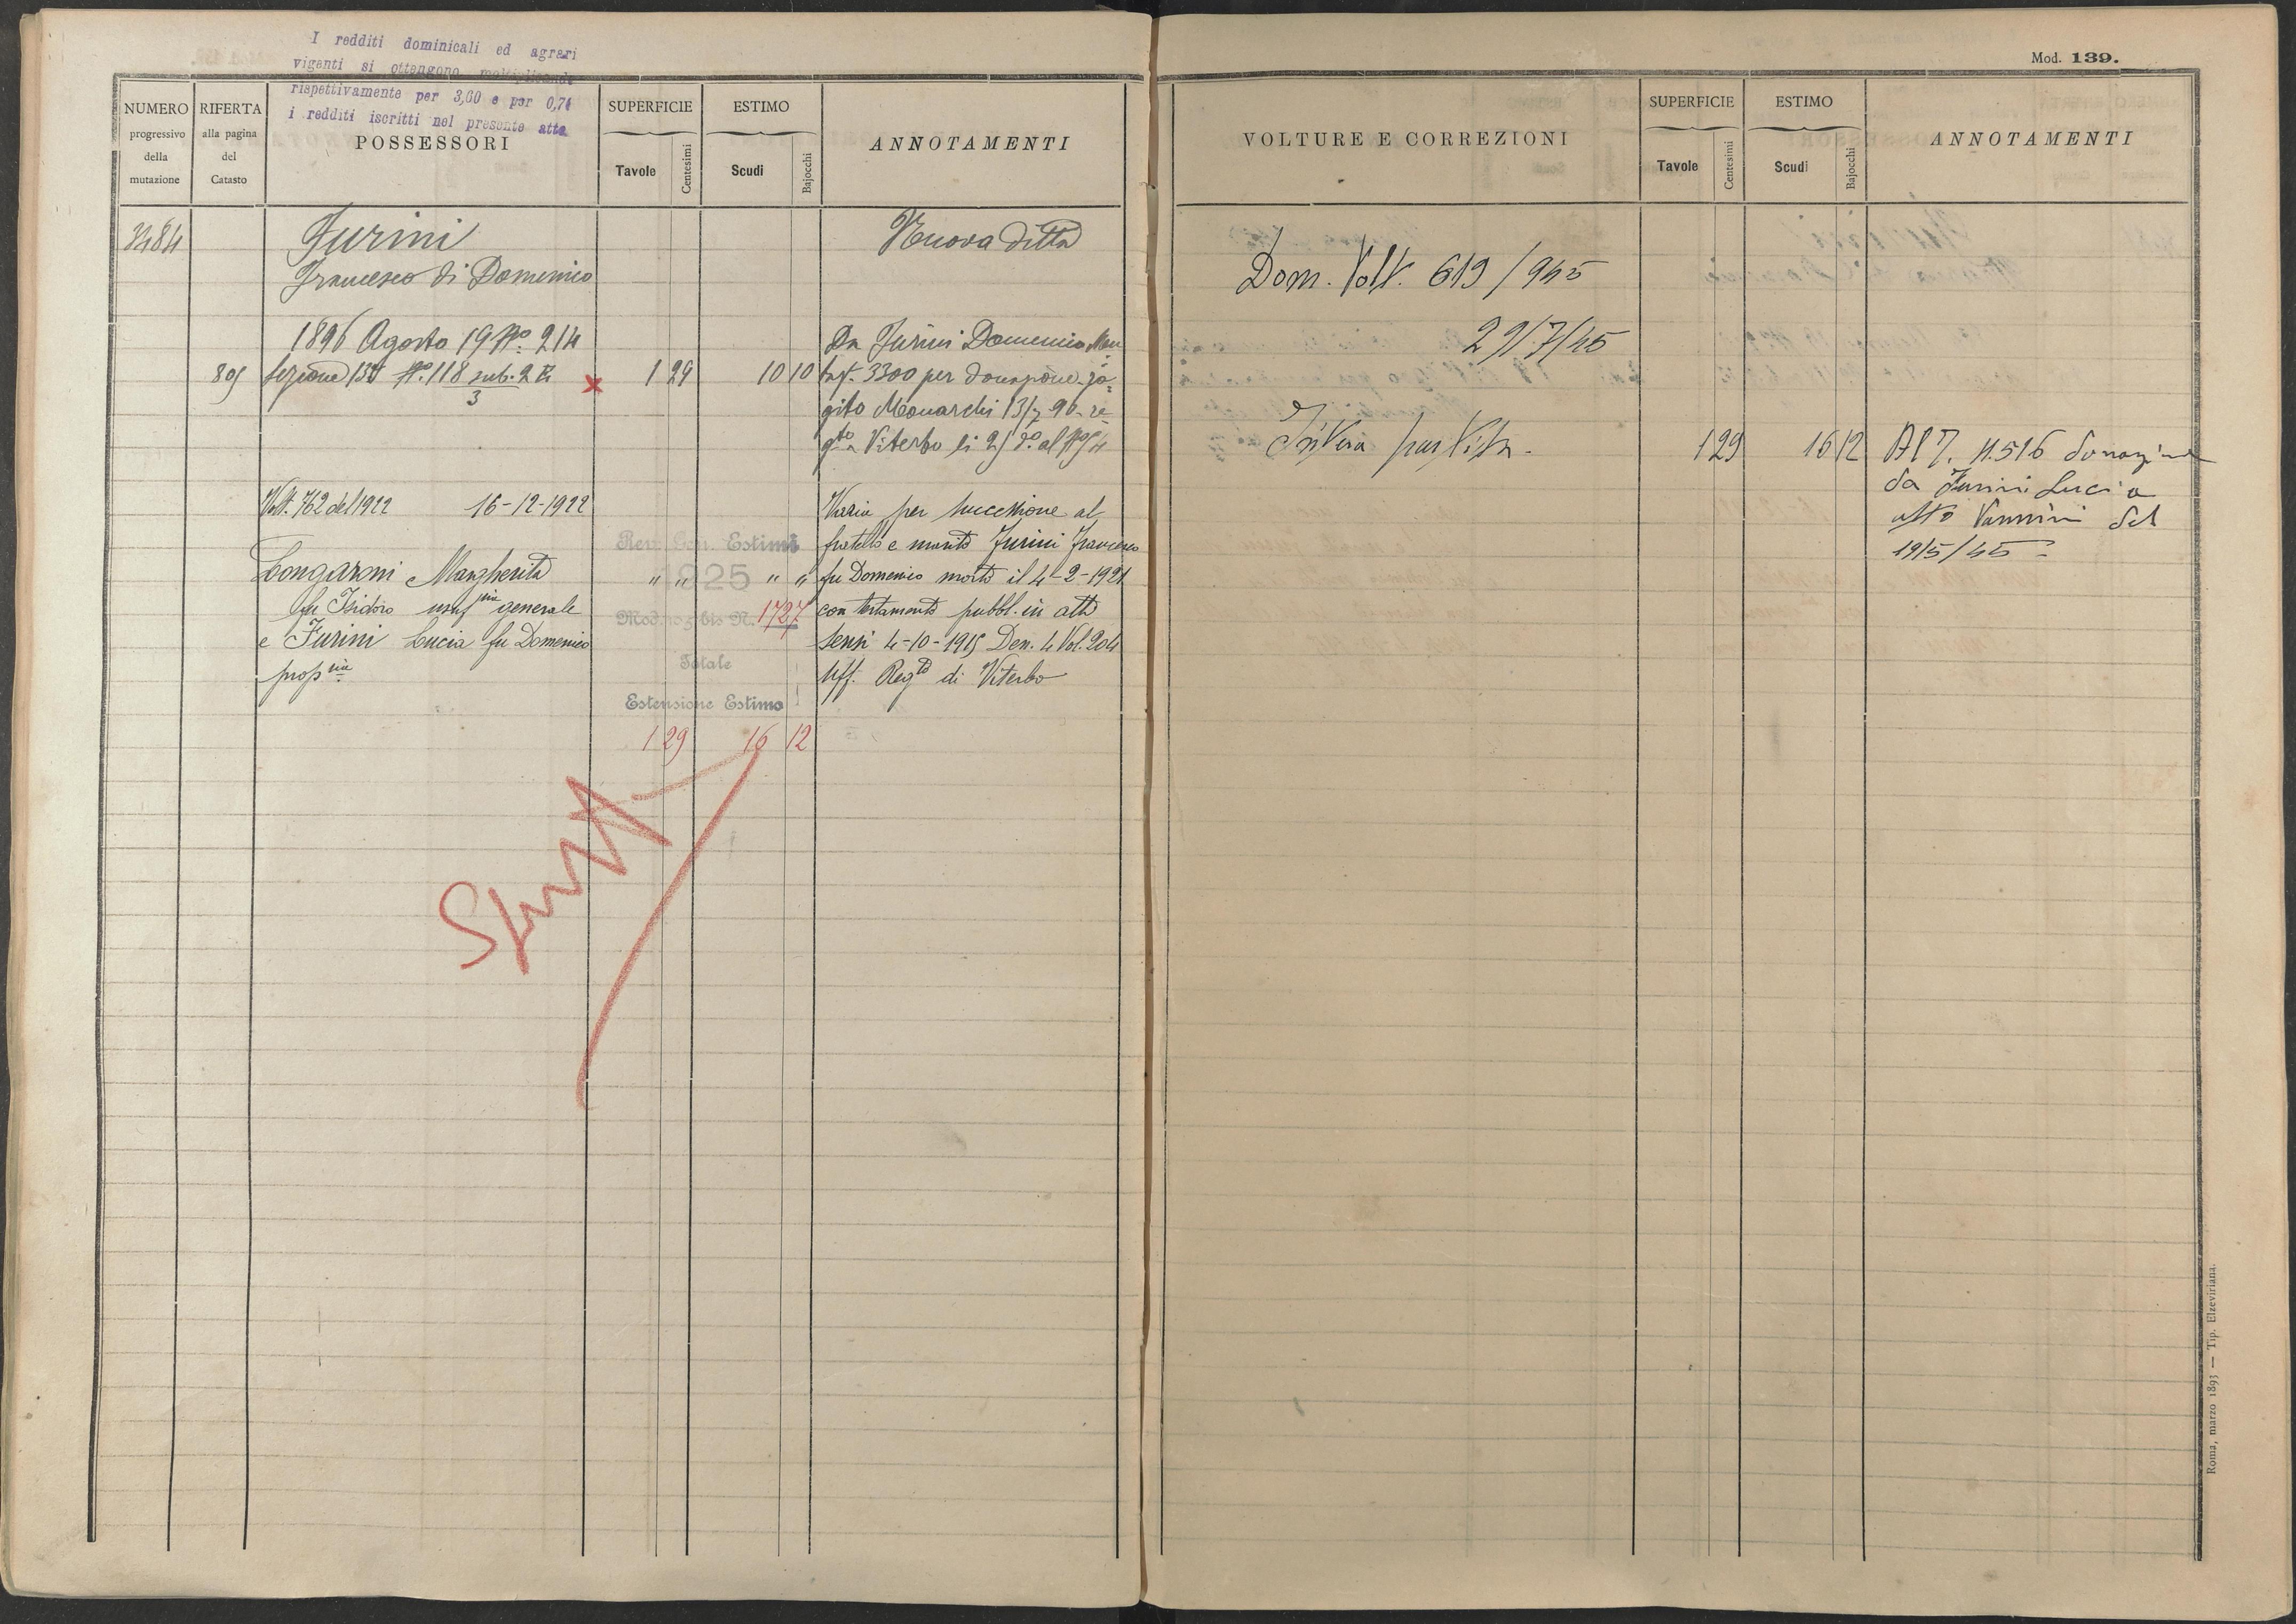 I redditi dominicali ed agrari
vigenti si ottengono moltiplicando
rispettivamente per 3,60 e per 0,74
i redditi iscritti nel presente atto
NUMERO
progressivo
della
mutazione
RIFERTA
alla pagina
del
Catasto
POSSESSORI
SUPERFICIE
Tavole
Centesimi
ESTIMO
Scudi
Bajocchi
ANNOTAMENTI
3484
Furini
Francesco di Domenico
Nuova ditta
1896 Agosto 19 No. 214
Da Furini Domenico
sub. 2
3
x
1 29
10 10
3300 per donazione
Viterbo li
Volt. 762 del 1922 16-12-1922
Varia per successione al
Rev. Gen. Estimi
fratello e marito Furini Francesco
Longaroni Margherita
" " 1925 " "
fu Domenico morto il 4-2-1921
fu Isidoro usuf ria generale
Mod. bis N. 1727
con testamento pubbl. in atti
e Furini Lucia fu Domenico
Sensi 4-10-1915 Den. 4 Vol. 204
prop ria
Totale
Uff. Reg º di Viterbo
Estensione Estimo
1 29 16 12
Mod. 139.
VOLTURE E CORREZIONI
SUPERFICIE
Tavole
Centesimi
ESTIMO
Scudi
Bajocchi
ANNOTAMENTI
Dom. Volt. 619/945
29/7/45
Intera partita.
1 29
16 12
N. 516 donazione
da Furini Lucia
atto Vannini del
19/5/45
Roma, marzo 1893 — Tip. Elzeviriana.